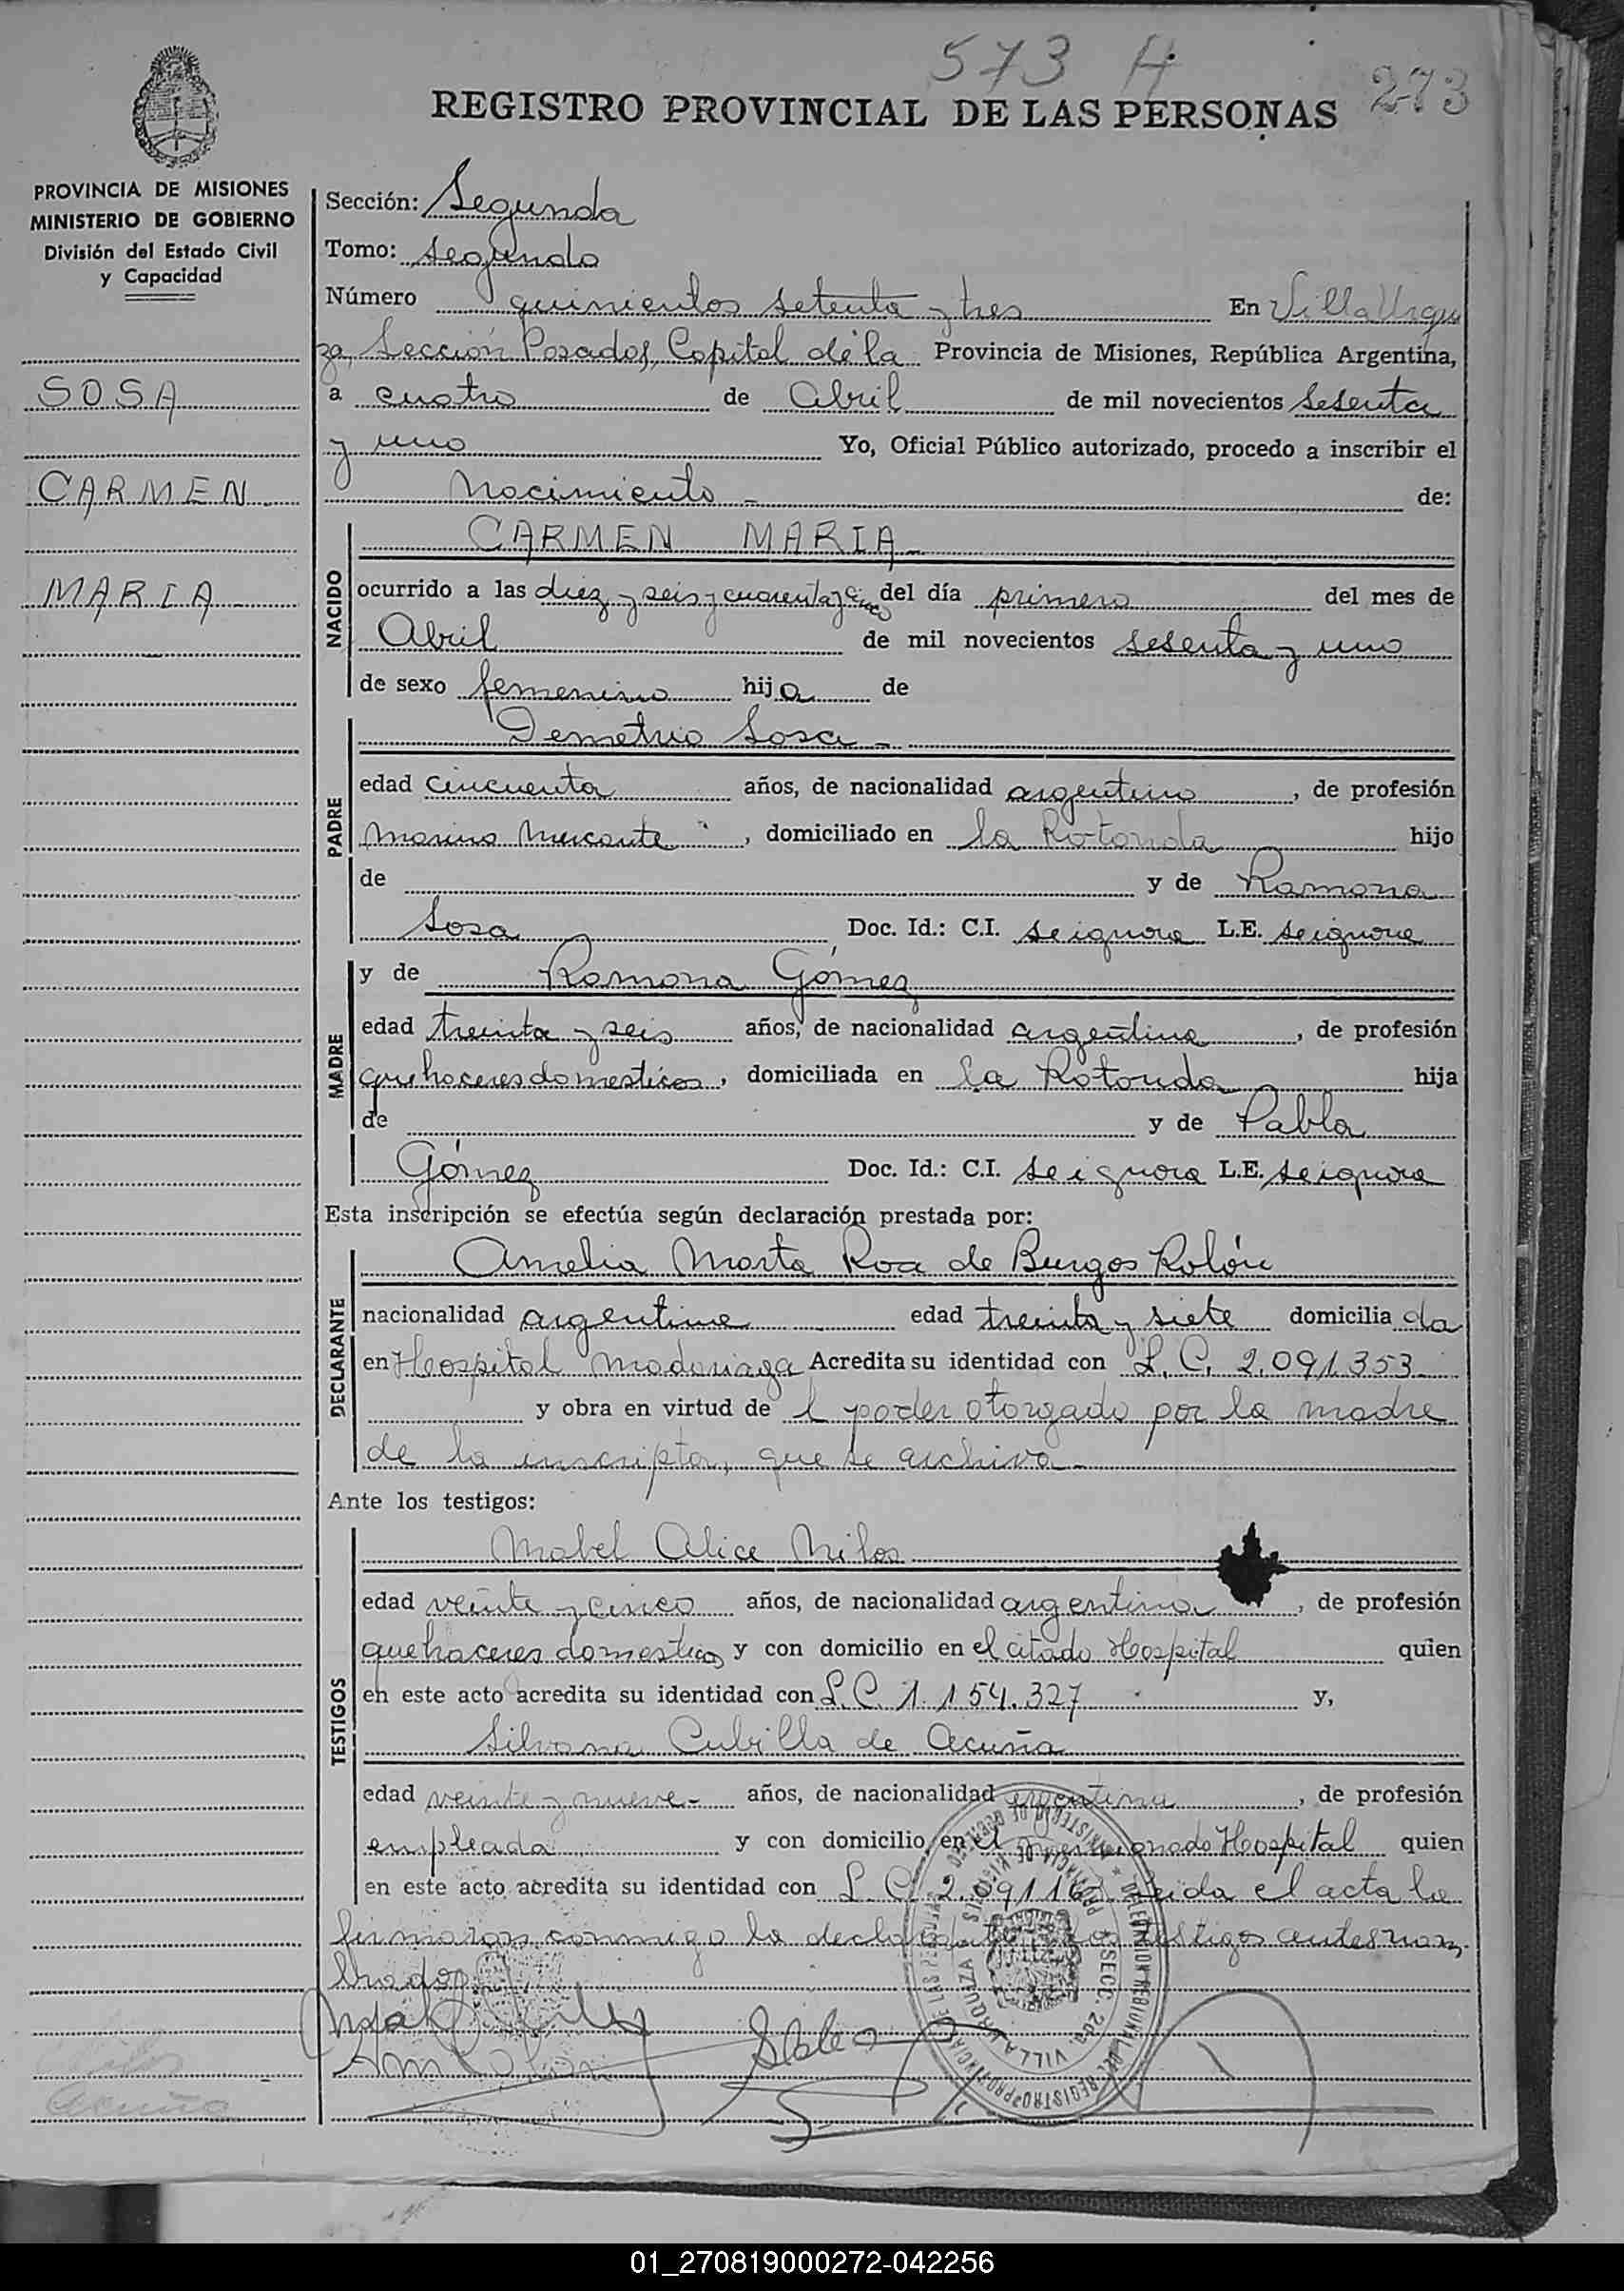 573 H
273
REGISTRO PROVINCIAL DE LAS PERSONAS
PROVINCIA DE MISIONES
MINISTERIO DE GOBIERNO
División del Estado Civil
y Capacidad
SOSA
CARMEN
MARIA
Sección: Segunda
Tomo: segundo
Número quinientos setenta y tres En Villa Urqui
za, Sección Posadas, Capital de la Provincia de Misiones, República Argentina,
a cuatro de Abril de mil novecientos sesenta
y uno Yo, Oficial Público autorizado, procedo a inscribir el
Nacimiento - de:
NACIDO
CARMEN MARIA -
ocurrido a las diez y seis y cuarenta y cinco del día primero del mes de
Abril de mil novecientos sesenta y uno
de sexo femenino hija de
PADRE
Demetrio Sosa -
edad cincuenta años, de nacionalidad argentino, de profesión
Marino Mercante, domiciliado en la Rotonda hijo
de y de Ramona
Sosa, Doc. Id.: C.I. se ignora L.E. se ignora
MADRE
y de Ramona Gómez
edad treinta y seis años, de nacionalidad argentina, de profesión
quehaceres domesticos, domiciliada en la Rotonda hija
de y de Pabla
Gómez Doc. Id.: C.I. se ignora L.E. se ignora
Esta inscripción se efectúa según declaración prestada por:
DECLARANTE
Amelia Marta Roa de Burgos Rolón
nacionalidad argentina edad treinta y siete domiciliada
en Hospital Madariaga Acredita su identidad con L. C. 2.091.353
y obra en virtud de l poder otorgado por la madre
de la inscripta, que se archiva -
Ante los testigos:
TESTIGOS
Mabel Alice Milos
edad veinte y cinco años, de nacionalidad argentina, de profesión
quehaceres domesticos y con domicilio en el citado Hospital quien
en este acto acredita su identidad con L.C. 1.154.327 y,
Silvana Cubilla de Acuña
edad veinte y nueve - años, de nacionalidad argentina, de profesión
empleada y con domicilio en el mencionado Hospital quien
en este acto acredita su identidad con L. C. Leida el acta la
firmaron conmigo la declarante los testigos antes nom
brados
Acuña
01_270819000272-042256